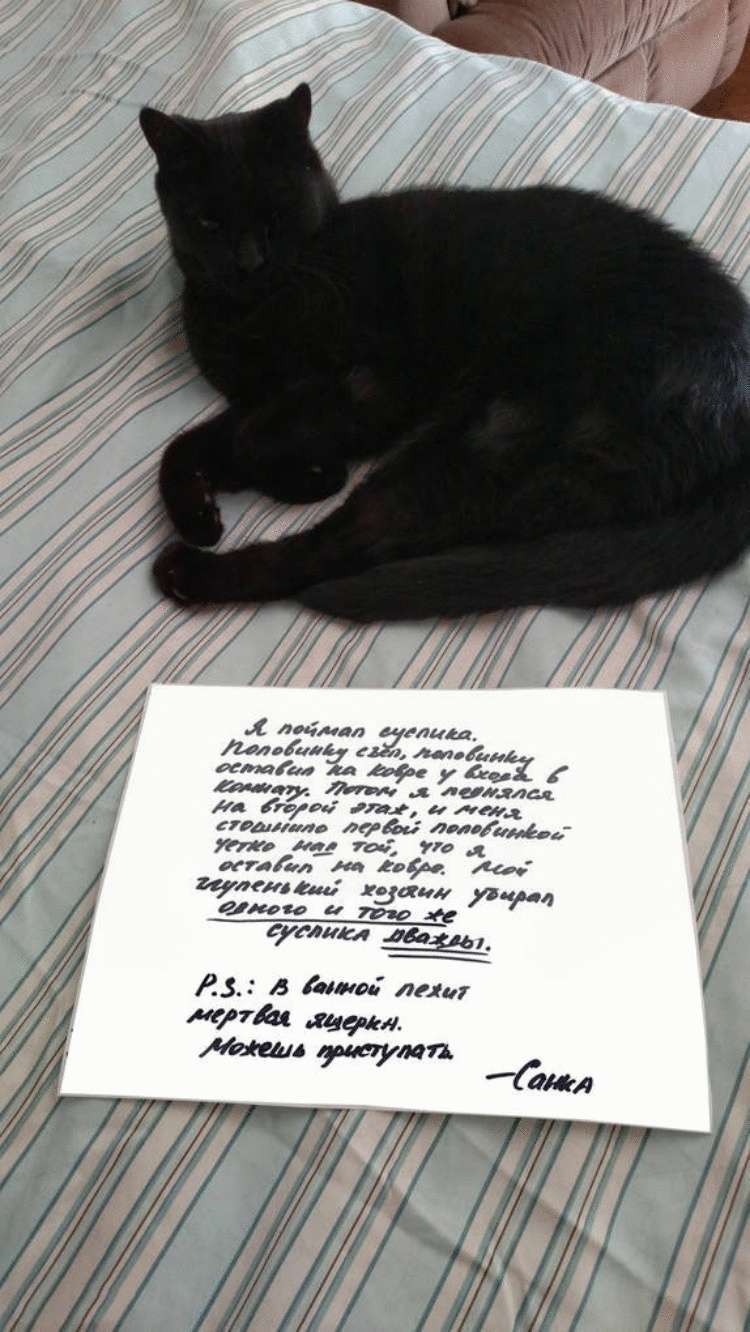 Я поймал суслика.
Половинку съел, половинку
оставил на ковре у входа в
комнату. Потом я поднялся
на второй этаж, и меня
стошнило первой половинкой
четко над той, что я
оставил на ковре. Мой
глупенький хозяин убирал
одного и того же
суслика дважды.
P.S.: В ванной лежит
мертвая ящерка.
Можешь приступать.
—Санка